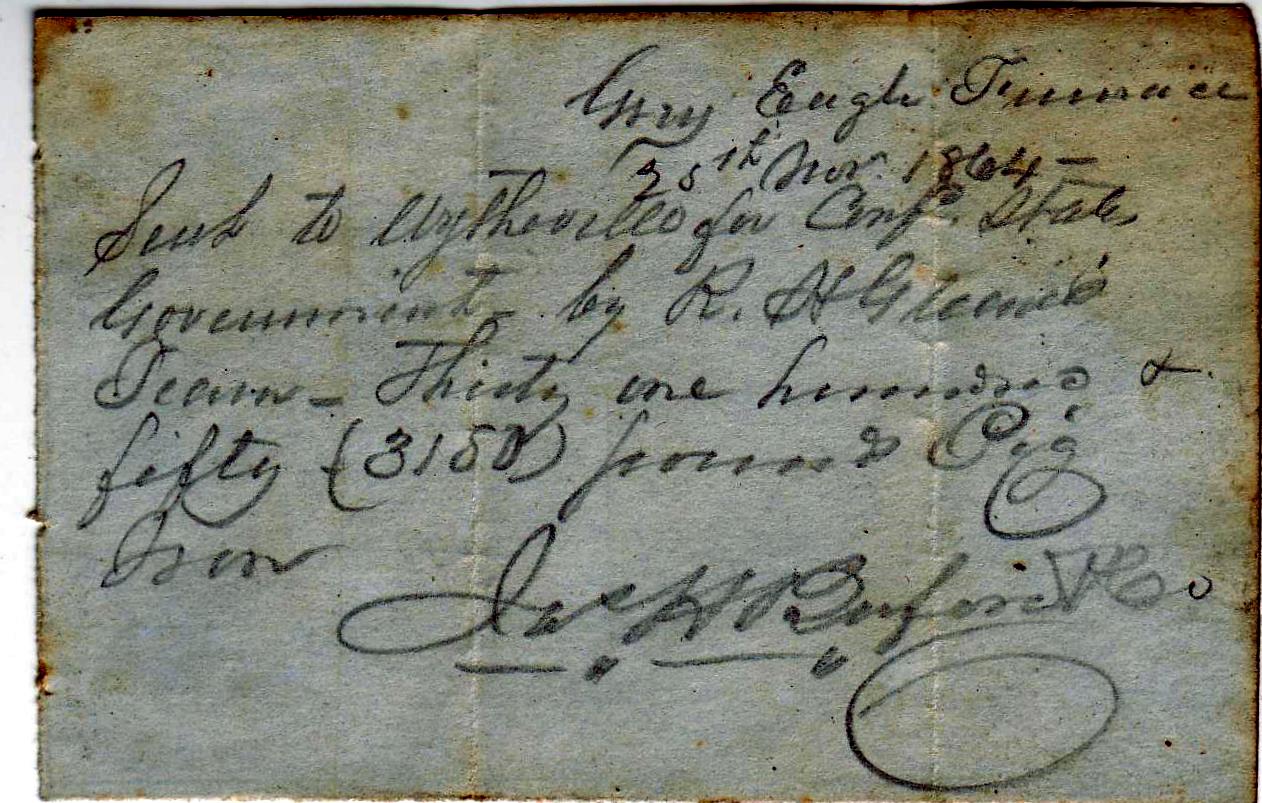 Grey Eagle Furnace
25th Nov. 1864 –
Sent to Wytheville for Conf. States
Government by R. H
Team – Thirty one hundred &
fifty (3150) pounds Pig
Iron
Jas H Buford & Co